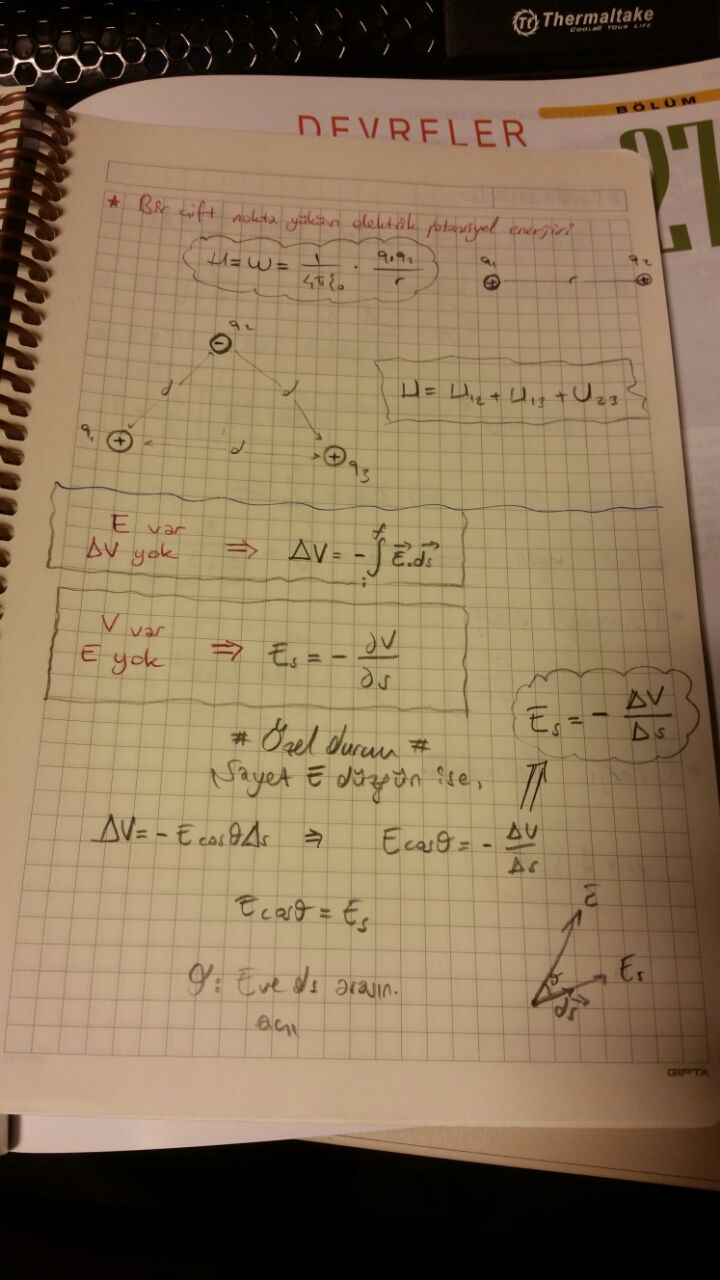 Thermaltake
COOL ALL YOUR LIFE
BÖLÜM
DEVRELER
27
* Bir çift nokta yükün elektrik potansiyel enerjisi
U = W = 1/4πε₀ · q₁q₂/r
q₁ + r q₂ +
q₂ -
d d
q₁ + d + q₃
U = U₁₂ + U₁₃ + U₂₃
E var
ΔV yok ⇒ ΔV = - ∫ᵢᶠ E⃗.ds⃗
V var
E yok ⇒ Es = - ∂V/∂s
Es = - ΔV/Δs
# Özel durum #
Şayet E düzgün ise,
ΔV = - E cosθ Δs ⇒ E cosθ = - ΔV/Δs
E cosθ = Es
θ: E ve ds arasın.
açı
E⃗
θ Es
ds⃗
GIPTA